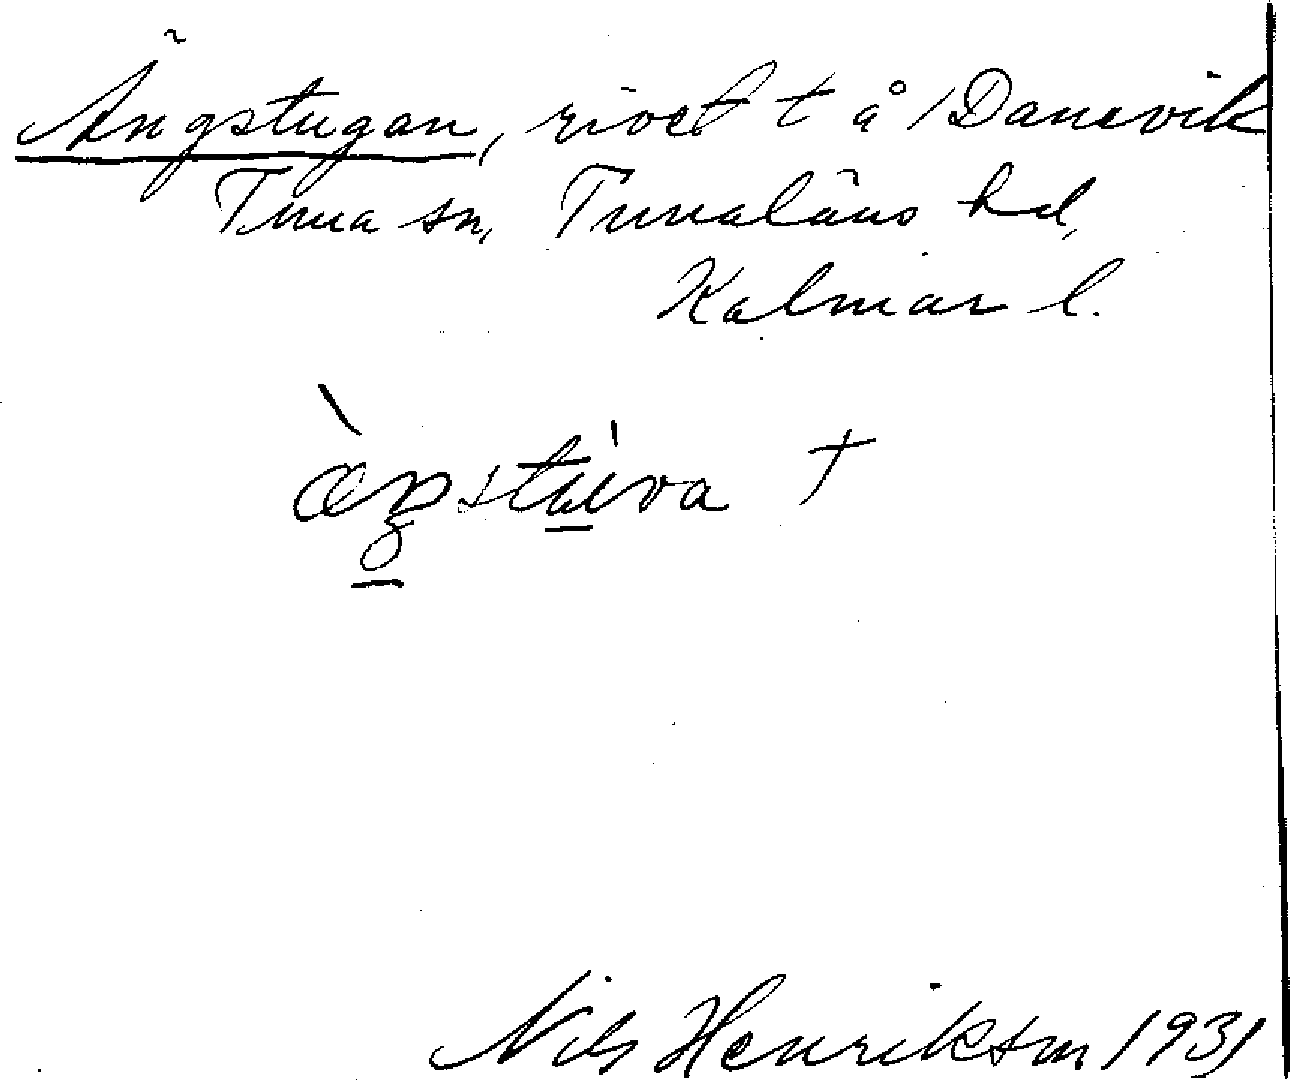 Ängstugan, rivet t å /Danevik
Tuna sn, Tunaläns hd,
Kalmar l.
†
Nils Henrikson 1931